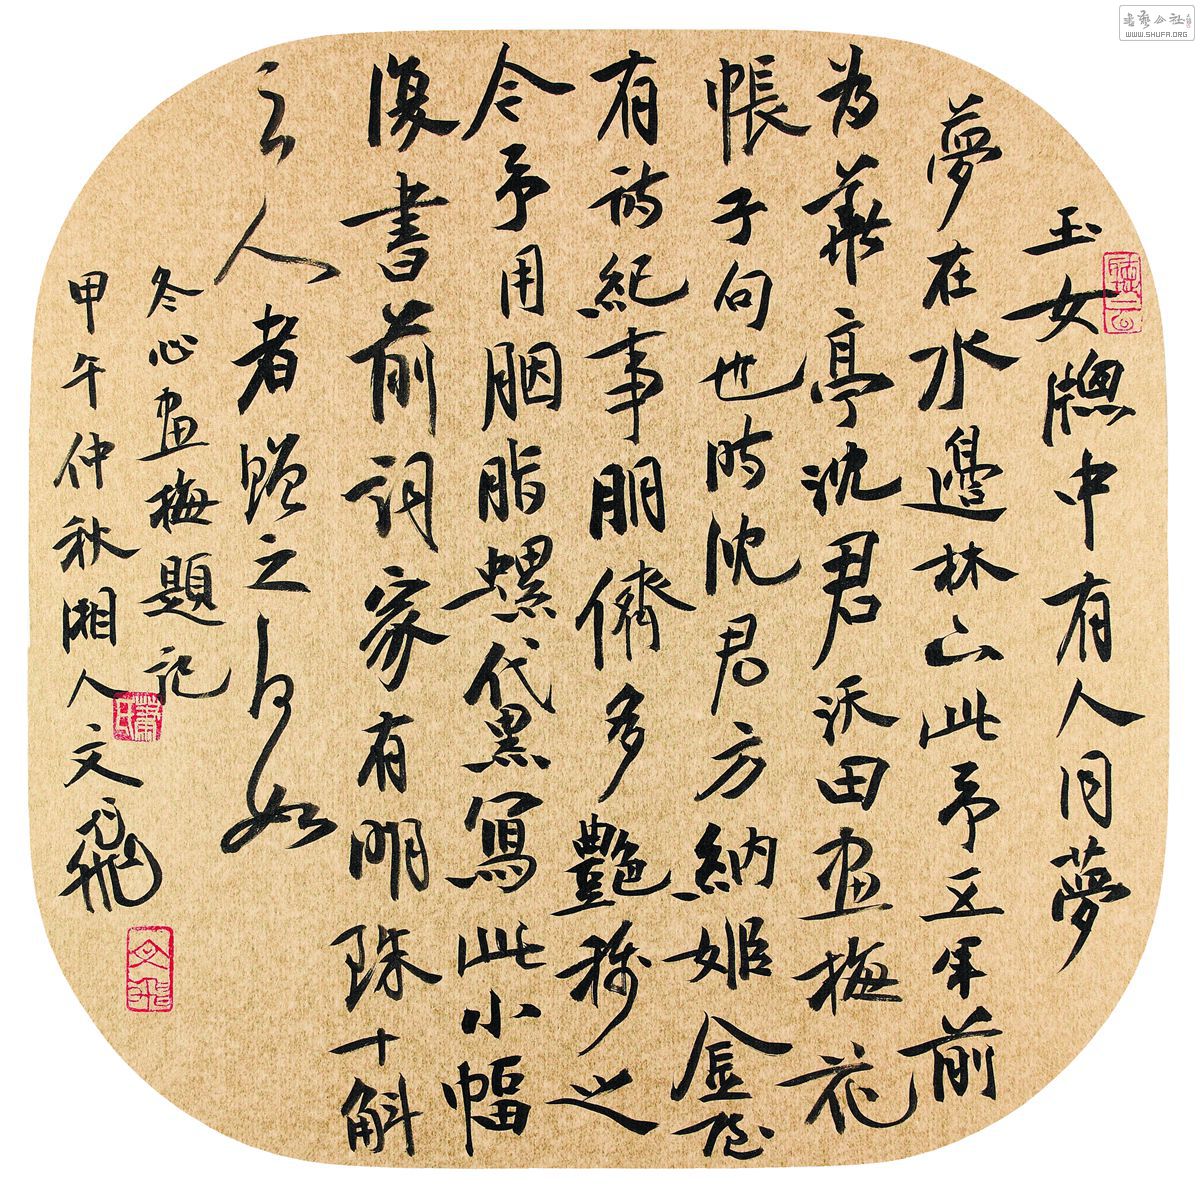 玉女牕中有人同夢
夢在水邊林下此予五年前
為華亭沈君沃田畫梅花
帳子句也時沈君方納姬金陵
有詩紀事朋儕多艷稱之
今予用胭脂螺代黑寫此小幅
復書前詞家有明珠十斛
之人者贈之何如
冬心畫梅題記
甲午仲秋湘人文飛
文飛
書藝公社
WWW.SHUFA.ORG